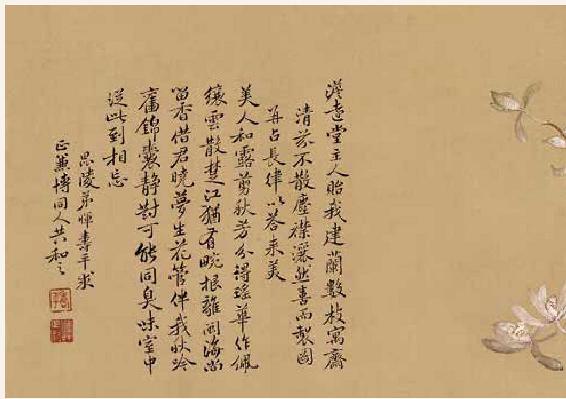 澹遠堂主人貽我建蘭數枝寓齋
清芬不散塵襟灑然喜而製圖
并占長律以答来美
美人和露剪秋芳分得瑤華作佩
纕雲散楚江猶有畹根離閩海尚
留香借君曉夢生花管伴我秋吟
舊錦囊靜對可能同臭味室中
從此到相忘
毘陵弟惲壽平求
正兼博同人共和之